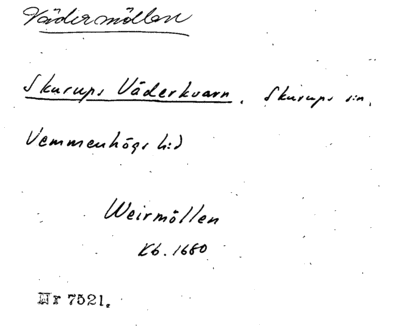 Vädermöllen
Skurups Väderkvarn. Skurups sn.
Vemmenhögs hd
Weirmöllen
Kb. 1680
Nr 7521.